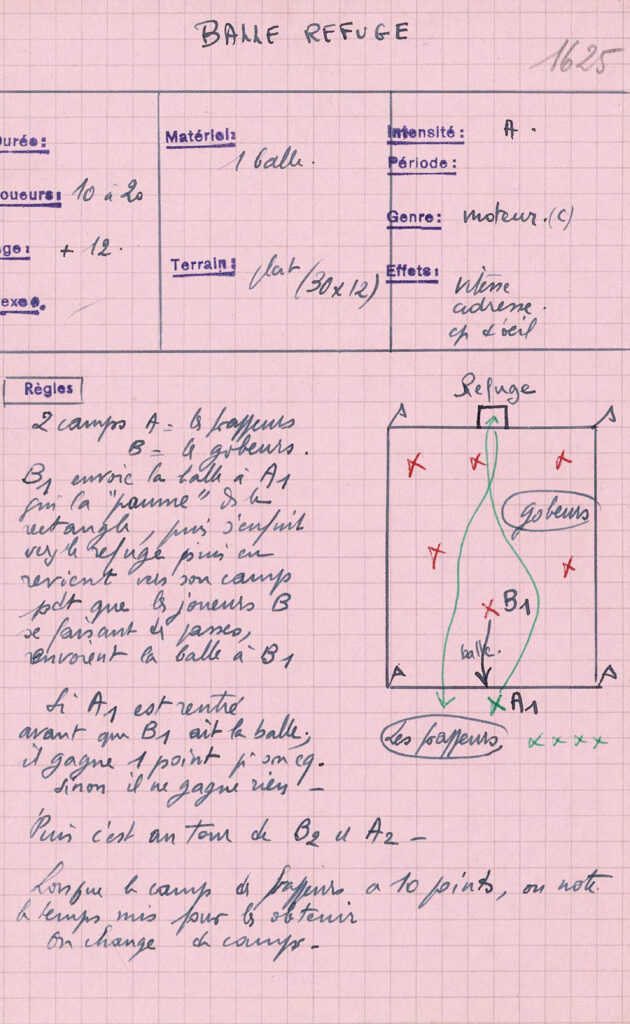 BALLE REFUGE
1625
Durée:
Matériel: 1 balle.
Intensité: A.
Période:
Joueurs: 10 à 20
Genre: moteur. (C)
Age: + 12.
Terrain: plat (30 x 12)
Effets: vitesse
adresse.
cp d'oeil
Sexe.
Règles
2 camps A = les frappeurs
B = les gobeurs.
B1 envoie la balle à A1
qui la "paume" ds le
rectangle, puis s'enfuit
vers le refuge puis en
revient vers son camp
pdt que les joueurs B
se faisant des passes,
renvoient la balle à B1
Si A1 est rentré
avant que B1 ait la balle,
il gagne 1 point pr son eq.
sinon il ne gagne rien -
Puis c'est au tour de B2 et A2 -
Lorsque le camp des frappeurs a 10 points, on note
le temps mis pour les obtenir
On change de camps -
Refuge
gobeurs
B1
balle.
A1
Les frappeurs